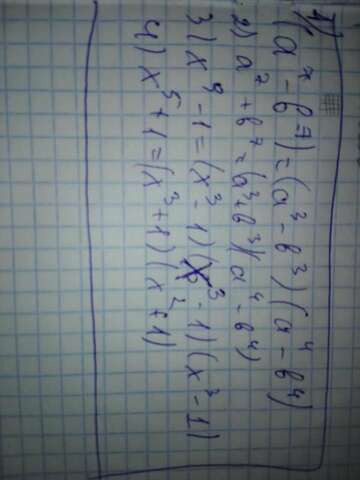 1)
(a⁷ - b⁷) = (a³ - b³)(a⁴ - b⁴)
2) a⁷ + b⁷ = (a³ + b³)(a⁴ - b⁴)
3) x⁹ - 1 = (x³ - 1)(x³ - 1)(x³ - 1)
4) x⁵ + 1 = (x³ + 1)(x² + 1)